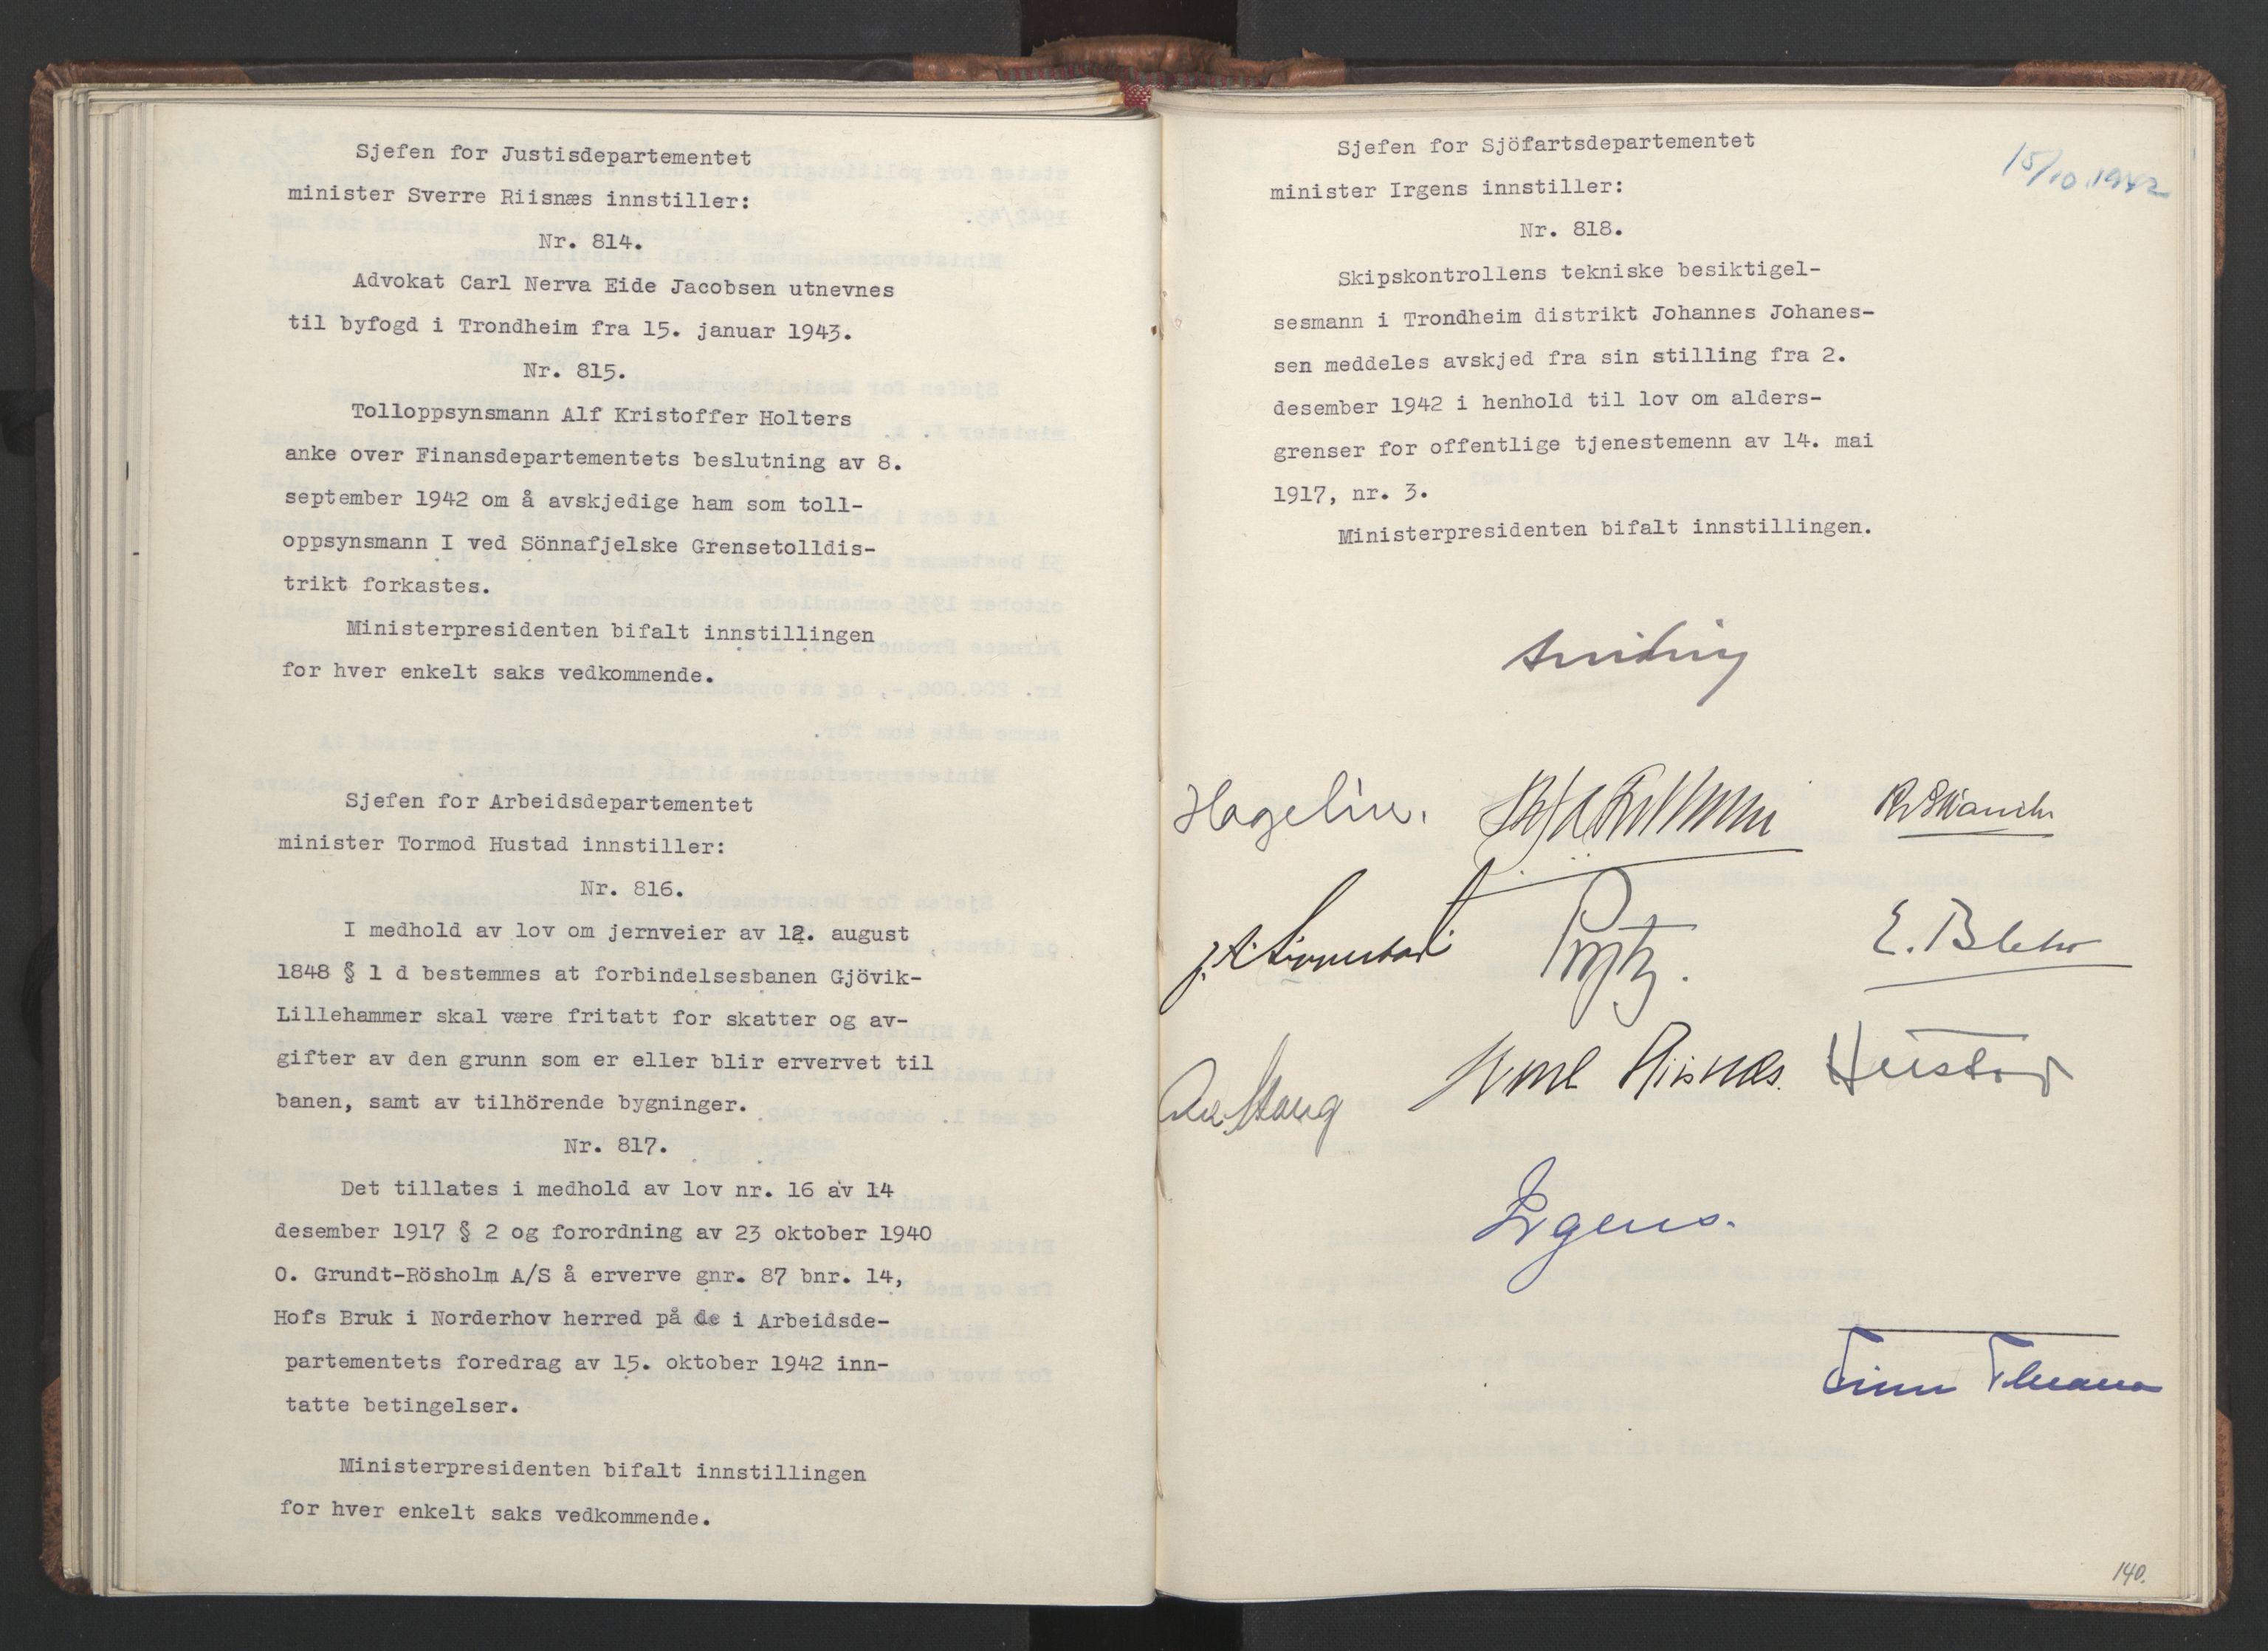 Sjefen for Justisdepartementet
minister Sverre Riisnæs innstiller:
Nr. 814.
Advokat Carl Nerva Eide Jacobsen utnevnes
til byfogd i Trondheim fra 15. januar 1943.
Nr. 815.
Tolloppsynsmann Alf Kristoffer Holters
anke over Finansdepartementets beslutning av 8.
september 1942 om å avskjedige ham som toll-
oppsynsmann I ved Sönnafjelske Grensetolldis-
trikt forkastes.
Ministerpresidenten bifalt innstillingen
for hver enkelt saks vedkommende.
Sjefen for Arbeidsdepartementet
minister Tormod Hustad innstiller:
Nr. 816.
I medhold av lov om jernveier av 12. august
1848 § 1 d bestemmes at forbindelsesbanen Gjövik-
Lillehammer skal være fritatt for skatter og av-
gifter av den grunn som er eller blir ervervet til
banen, samt av tilhörende bygninger.
Nr. 817.
Det tillates i medhold av lov nr. 16 av 14
desember 1917 § 2 og forordning av 23 oktober 1940
O. Grundt-Rösholm A/S å erverve gnr. 87 bnr. 14,
Hofs Bruk i Norderhov herred på de i Arbeidsde-
partementets foredrag av 15. oktober 1942 inn-
tatte betingelser.
Ministerpresidenten bifalt innstillingen
for hver enkelt saks vedkommende.
15/10 1942
Sjefen for Sjöfartsdepartementet
minister Irgens innstiller:
Nr. 818.
Skipskontrollens tekniske besiktigel-
sesmann i Trondheim distrikt Johannes Johanes-
sen meddeles avskjed fra sin stilling fra 2.
desember 1942 i henhold til lov om alders-
grenser for offentlige tjenestemenn av 14. mai
1917, nr. 3.
Ministerpresidenten bifalt innstillingen.
Hagelin.
J. A. Lippestad Prytz. E. Blehr
Riisnæs. Hustad
Irgens.
Finn
140.